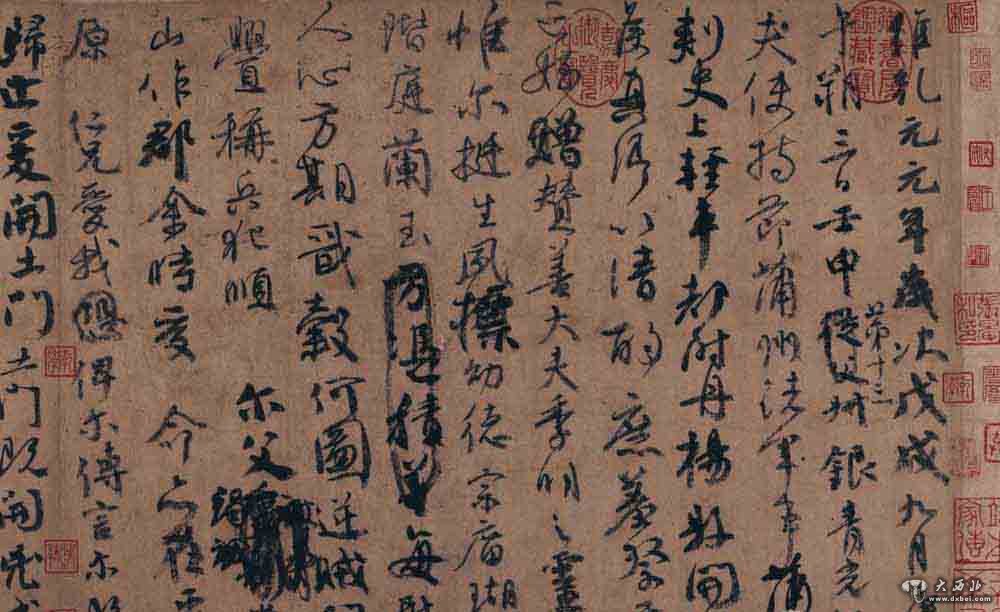 維乾元元年歲次戊戌九月
午朔三日壬申第十三從父叔銀青光
夫使持節蒲州諸軍事蒲
刺史上輕車都尉丹楊縣開
侯真卿以清酌庶羞祭
亡姪贈贊善大夫季明之靈
惟爾挺生夙標幼德宗廟瑚
階庭蘭玉每
人心方期戩穀何圖逆賊間
舋稱兵犯順爾父竭誠
山作郡余時受命亦在平
原仁兄愛我恐俾爾傳言爾既
歸止爰開土門土門既開凶威
大西北
www.dxbei.com